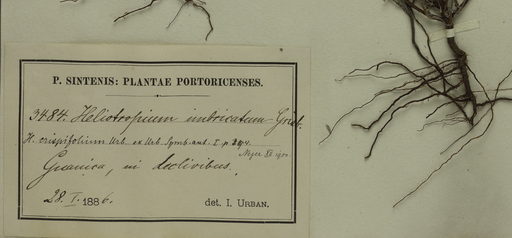 P. SINTENIS: PLANTAE PORTORICENSES.
3484. Heliotropium imbricatum Gris.
H. crispifolium Urb. ex Urb. Symb. ant. I. p.
Guanica, in declivibus.
28. I. 1886. det. I. URBAN.